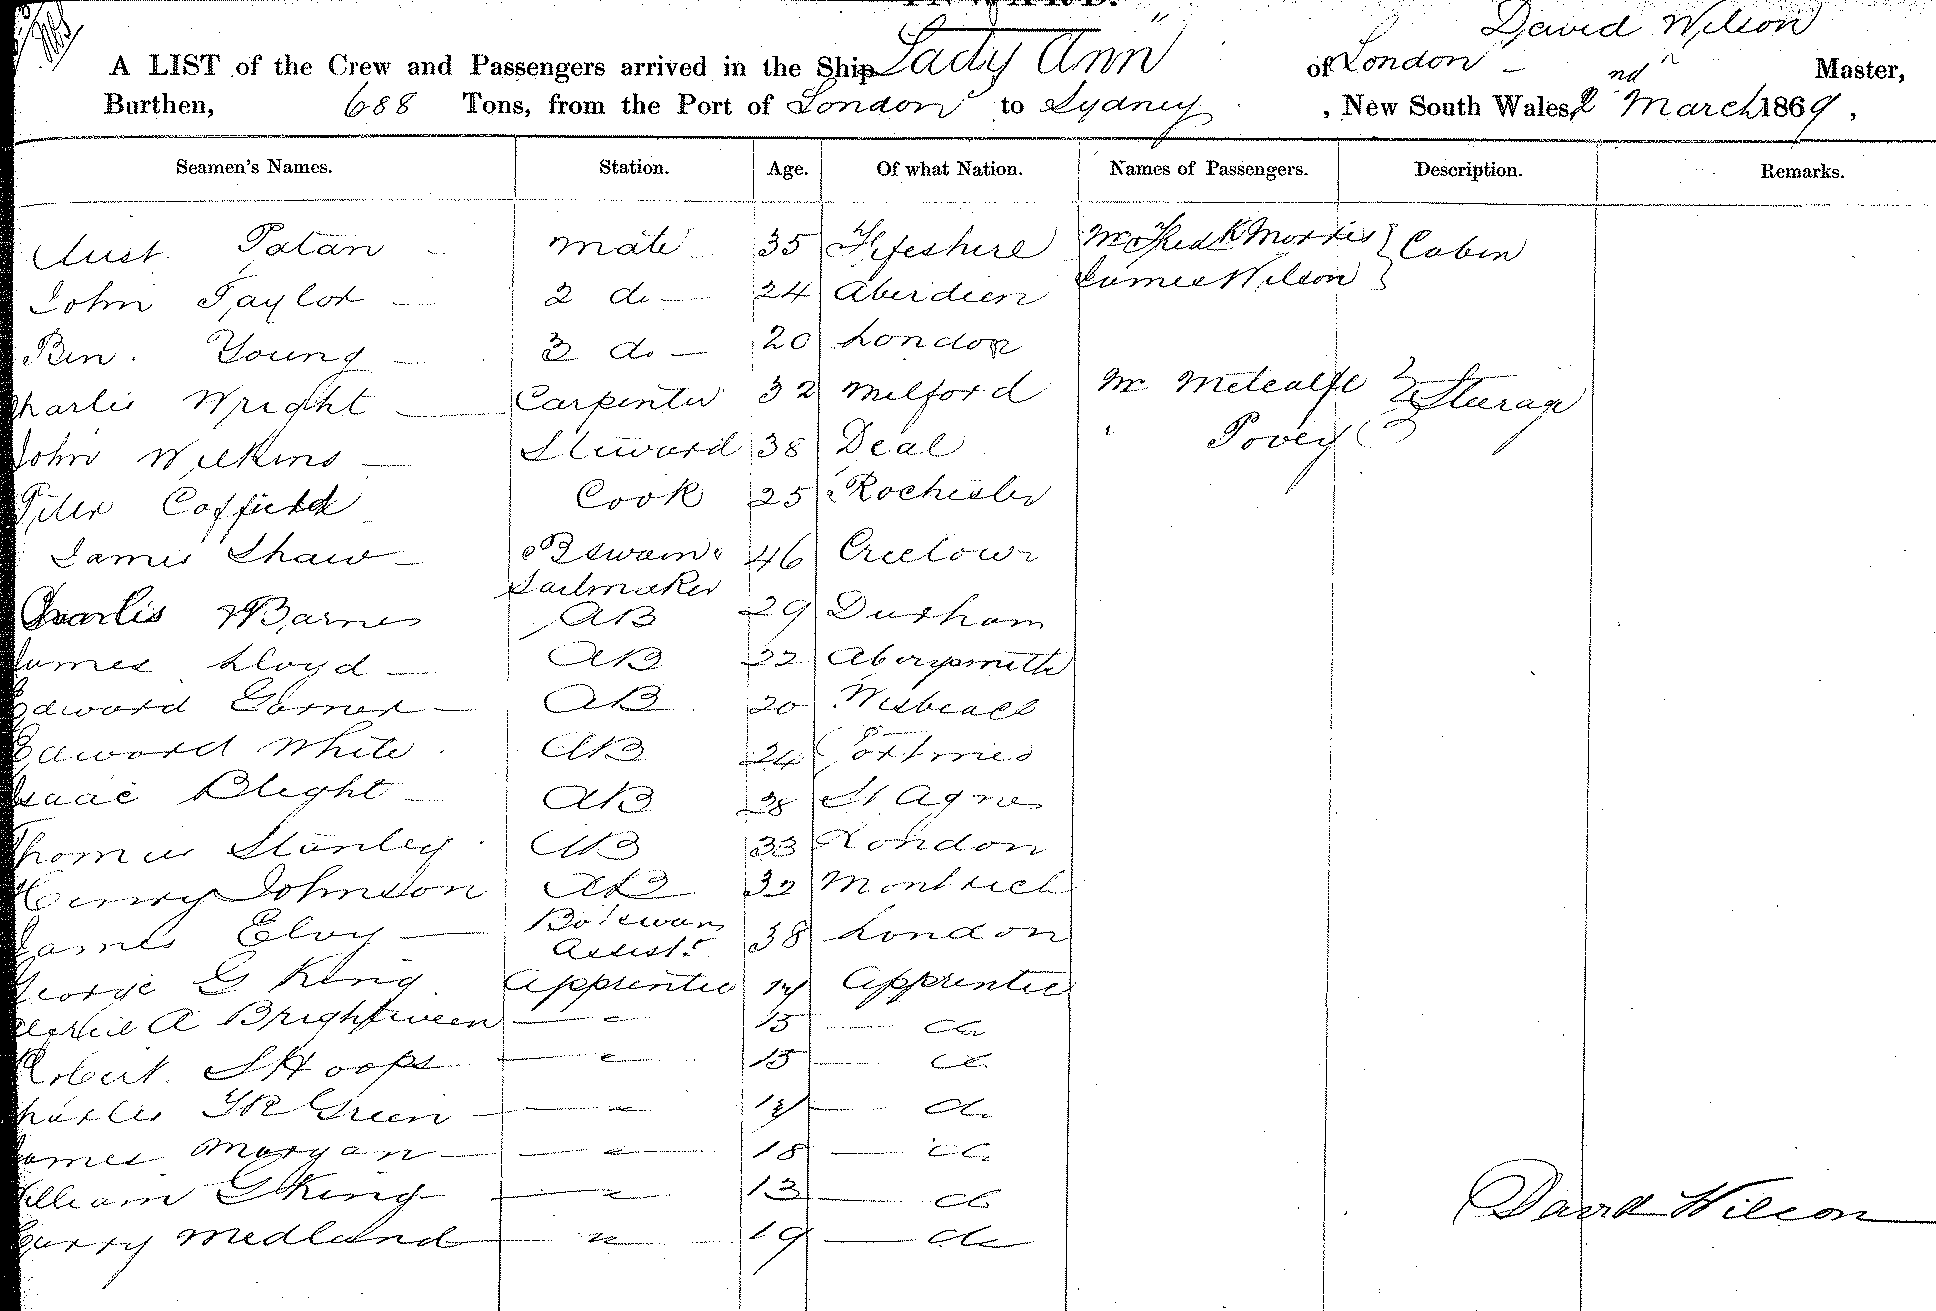 INWARD.
David Wilson
A LIST of the Crew and Passengers arrived in the Ship "Lady Ann" of London Master,
Burthen, 688 Tons, from the Port of London to Sydney, New South Wales, 2nd March 1869,
Seamen's Names. Station. Age. Of what Nation. Names of Passengers. Description. Remarks.
Aust. Patan mate 35 Fifeshire Mr Fredk Morris Cabin
John Taylor 2 do 24 Aberdeen James Wilson
Ben. Young 3 do 20 London
Charles Wright Carpenter 32 Milford Mr Metcalfe Steerage
John Wilkins Steward 38 Deal " Povey
Peter Coffield Cook 25 Rochester
James Shaw Bswain & 46 Creetown
Sailmaker
Charles Barnes AB 29 Durham
James Lloyd AB 22 Aberysmith
Edward Garner AB 20 Wisbeach
Edward White AB 24
Isaac Blight AB 28 St Agnes
Thomas Stanley AB 33 London
Henry Johnson AB 32
James Elvy Bo'swain 38 London
Assist.
George G King Apprentice 14 Apprentice
A Brightween " 15 do
Robert S Hoops " 15 do
Charles Green " do
James Morgan " 18 do
William G King " 13 do
David Wilson
Harry Medland " 19 do